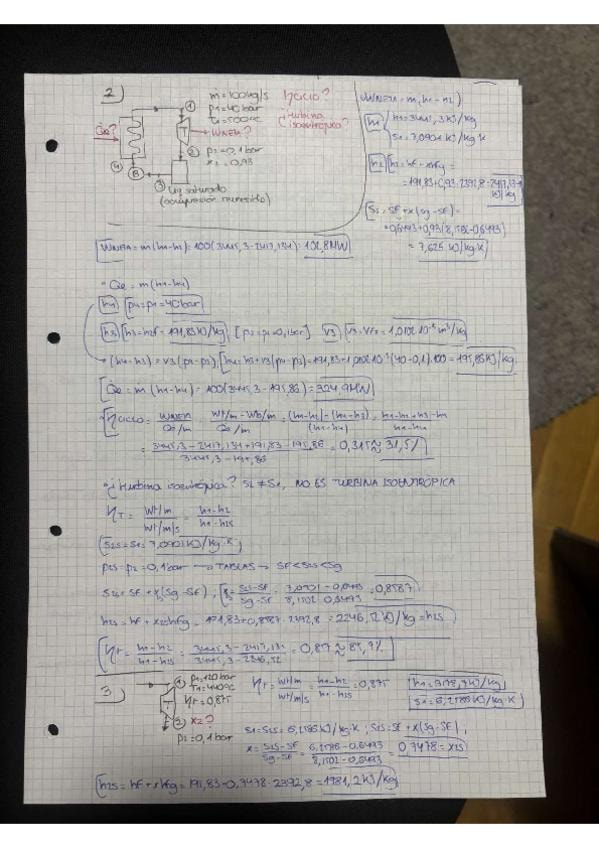 2)
m=100kg/s
p1=40bar
t1=500ºC
ηciclo?
¿turbina isoentrópica?
Qe?
WNETA?
p2=0,1bar
x2=0,93
liq saturado
WNETA=m(h1-h2)
h1=3445,3 kJ/kg
s1=7,0901 kJ/kg·K
h2 h2=hf+xhfg=
=191,83+0,93·2392,8=2417,134 kJ/kg
s2=sf+x(sg-sf)=
=0,6493+0,93(8,1502-0,6493)
=7,625 kJ/kg·K
WNETA=m(h1-h2)=100(3445,3-2417,134)=102,8MW
Qe=m(h1-h4)
h4 p4=p1=40bar
h3 h3=h2f=191,83kJ/kg [p3=p2=0,1bar] v3 v3=vf3=1,0102·10⁻³m³/kg
(h4-h3)=v3(p4-p3); h4=h3+v3(p4-p3)=191,83+1,0102·10⁻³(40-0,1)·100=195,86kJ/kg
Qe=m(h1-h4)=100(3445,3-195,86)=324,9MW
ηciclo=WNETA/m / Qe/m = Wt/m-Wb/m / Qe/m = (h1-h2)-(h4-h3) / (h1-h4) = h1-h2+h3-h4 / h1-h4
= 3445,3-2417,134+191,83-195,86 / 3445,3-195,86 = 0,315≈31,5%
¿turbina isoentrópica? s2≠s1, NO ES TURBINA ISOENTRÓPICA
ηT= Wt/m / Wt/m|s = h1-h2 / h1-h2s
s2s=s1=7,0901kJ/kg·K
p2s=p2=0,1bar → TABLAS → sf<s2s<sg
s2s=sf+x(sg-sf), x= s2s-sf / sg-sf = 7,0901-0,6493 / 8,1502-0,6493 = 0,8587
h2s=hf+x2shfg=191,83+0,8587·2392,8=2246,12kJ/kg=h2s
ηT= h1-h2 / h1-h2s = 3445,3-2417,134 / 3445,3-2246,12 = 0,857≈85,7%
3)
p1=120bar
T1=440ºC
ηT=0,875
x2?
p2=0,1bar
ηT= Wt/m / Wt/m|s = h1-h2 / h1-h2s = 0,875
h1=3178,7kJ/kg
s1=6,2586kJ/kg·K
s1=s2s=6,2586kJ/kg·K; s2s=sf+x(sg-sf);
x= s2s-sf / sg-sf = 6,2586-0,6493 / 8,1502-0,6493 = 0,7478=x2s
h2s=hf+xhfg=191,83+0,7478·2392,8=1981,2kJ/kg